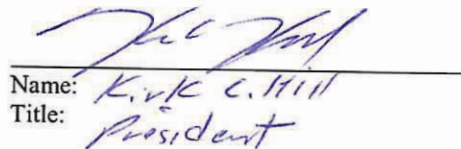 Name: Kirk C. Hill
Title: President